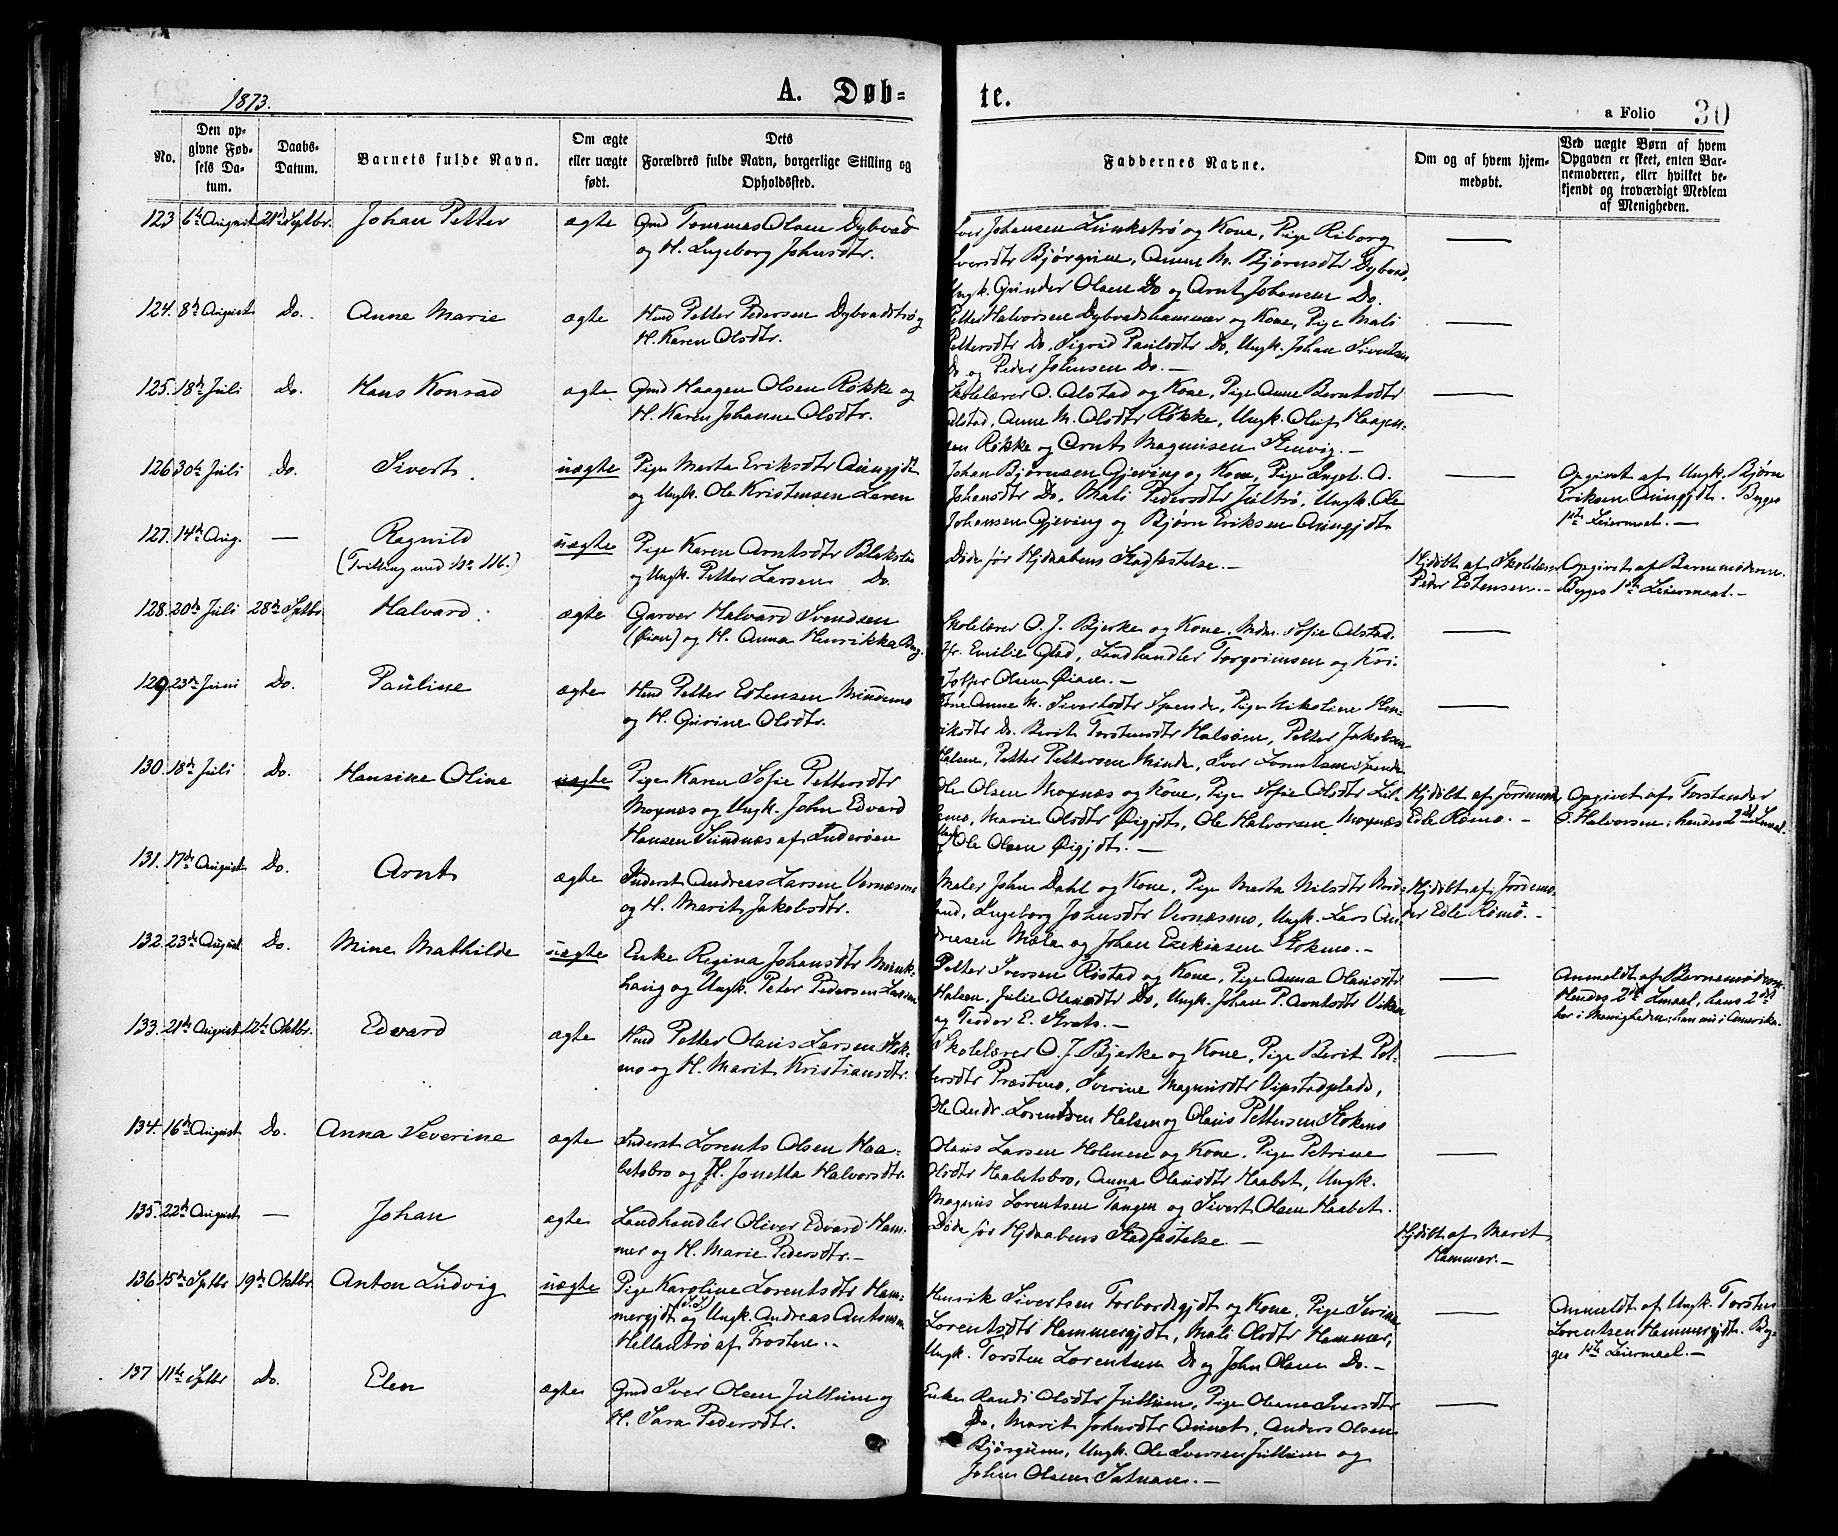 1873.
A. Døb-
te.
a Folio 30
No.
Den op-
givne Fød-
sels Da-
tum.
Daabs-
Datum.
Barnets fulde Navn.
Om ægte
eller uægte
født.
Dets
Forældres fulde Navn, borgerlige Stilling og
Opholdssted.
Faddernes Navne.
Om og af hvem hjem-
medøbt.
Ved uægte Børn af hvem
Opgaven er skeet, enten Bar-
nemoderen, eller hvilket be-
kjendt og troværdigt Medlem
af Menigheden.
123 6te August 21de Septbr. Johan Petter ægte Gmd Tommas Olsen Dybvad
og H. Ingeborg Johnsdtr.
Iver Johansen Linketrø og Kone, Pige Riborg
Iversdtr Bjørgum, Anne M. Bjørnsdtr Dybvad,
Ungk. Gunder Olsen Do og Arnt Johansen Do.
124. 8de August Do. Anne Marie ægte Hmd Petter Pedersen Dybvadstrø og
H. Karen Olsdtr.
Petter Halvorsen Dybvadshammer og Kone, Pige Mali
Pettersdtr Do, Sigrid Paulsdtr Do, Ungk. Johan Sivertsen
Do og Peder Johnsen Do. —
125. 18de Juli Do. Hans Konrad ægte Gmd Haagen Olsen Røkke og
H. Karen Johanne Olsdtr.
Skolelærer O. Alstad og Kone, Pige Anne Berntsdtr
Alstad, Anne M. Olsdtr Røkke, Ungk. Oluf Haagen-
sen Røkke og Arnt Magnusen Stenvig. —
126 30te Juli Do. Sivert. uægte Pige Marta Eriksdtr Aunegjdt
og Ungk. Ole Kristensen Laren
Johan Bjørnsen Gjeving og Kone, Pige Ingeb. A.
Johansdtr Do, Mali Pedersdtr Jultrø, Ungk. Ole
Johansen Gjeving og Bjørn Eriksen Aunegjdt
Opgivet af Ungk. Bjørn
Eriksen Aunegjdt. Begges
1ste Leiermaal. —
127. 14de Aug. — Ragnild
(Tvilling med No 116.)
uægte Pige Karen Arntsdtr Blekstad
og Ungk. Petter Larsen Do.
Døde før Hjdaabens Stadfæstelse. —
Hjdøbt af Skolelærer
Peder Estensen. —
Opgivet af Barnemoderen.
Begges 1ste Leiermaal. —
128. 20de Juli 28de Septbr Halvard. ægte Garver Halvard Svendsen
(Øian) og H. Anna Henrikka Bng.
Skolelærer O. J. Bjerke og Kone, Mdm. Sofie Alstad.
Fr. Emilie Glad, Landhandler Torgrimsen og Kri-
stoffer Olsen Øian. —
129 23de Juni Do. Pauline ægte Hmd Petter Estensen Mindemo
og H. Gurine Olsdtr.
Kone Anne M. Sivertsdtr Spende, Pige Nikoline Hen-
riksdtr Do. Berit Torstensdtr Halsøen, Petter Jakobsen
Halsen, Petter Pettersen Minde, Iver Lorentsen Spende
130 18de Juli Do. Hansine Oline uægte Pige Karen Sofie Pettersdtr
Moxnæs og Ungk. John Edvard
Hansen Sundnæs af Inderøen
Ole Olsen Moxnæs og Kone, Pige Sofie Olsdtr Lil-
lemo, Marie Olsdtr Øigjdt, Ole Halvorsen Moxnæs
Ungk Ole Olsen Øigjdt. —
Hjdøbt af Jordemoder
Edle Rømo. —
Opgivet af Torstender
O. Halvorsen; hendes 2det Lmaal.
131. 17de August Do. Arnt ægte Inderst Andreas Larsen Vernæsmo
og H. Marit Jakobsdtr.
Maler John Dahl og Kone, Pige Marta Nilsdtr Nord-
land, Ingeborg Johnsdtr Vernæsmo, Ungk. Lars An-
dreasen Mæla og Johan Ezekiasen Stokmo. —
Hjdøbt af Jordemo-
der Edle Rømo. —
132. 23de August Do. Mine Mathilde uægte Enke Regina Johansdtr Munk-
haug og Ungk. Peter Pedersen Laren
Petter Iversen Røstad og Kone, Pige Anna Olausdtr
Halsen, Julie Olausdtr Do, Ungk. Johan P. Arntsdtr Viken
og Teodor E. Strats. —
Anmeldt af Barnemoderen
Hendes 2det Lmaal, hans 2det
her i Menigheden; han nu i Amerika.
133. 21de August 12te Oktbr. Edvard ægte Hmd Petter Olaus Larsen Stok-
mo og H. Marit Kristiansdtr.
Skolelærer O. J. Bjerke og Kone, Pige Berit Pet-
tersdtr Præstmo, Iverine Magnusdtr Vipstadplads,
Ole Andr. Lorentsen Halsen og Olaus Pettersen Stokmo
134. 16de August Do. Anna Severine ægte Inderst Lorents Olsen Haa-
betsbro og H. Jonetta Halvorsdtr.
Olaus Larsen Holmen og Kone. Pige Petrine
Olsdtr Haabetsbro, Anna Olausdtr Haabet, Ungk.
Magnus Lorentsen Tangen og Sivert Olsen Haabet.
135. 22de August — Johan ægte Landhandler Oliver Edvard Ham-
mer og H. Marie Pedersdtr. —
Døde før Hjdaabens Stadfæstelse —
Hjdøbt af Marit
Hammer. —
136 15de Septbr 19de Oktbr. Anton Ludvig uægte Pige Karoline Lorentsdtr Ham-
mergjdt og Ungk. Andreas Antonsen
Hellantrø af Frosten. —
Henrik Sivertsen Forbordsgjdt og Kone, Pige Serine
Lorentsdtr Hammergjdt, Mali Olsdtr Hammer,
Ungk. Torsten Lorentsen Do og John Olsen Do. —
Anmeldt af Ungk. Torsten
Lorentsen Hammergjdt. Beg-
ges 1ste Leiermaal. —
137 11te Septbr Do. Elen ægte Gmd Iver Olsen Jullum og
H. Sara Pedersdtr.
Enke Randi Olsdtr Jullum, Pige Oleane Iversdtr
Do, Marit Johnsdtr Aunet, Anders Olsen
Bjørgum, Ungk. Ole Iversen Jullum og
John Olsen Satnan. —